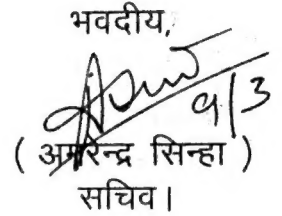 भवदीय,
9/3
( अमरेन्द्र सिन्हा )
सचिव।